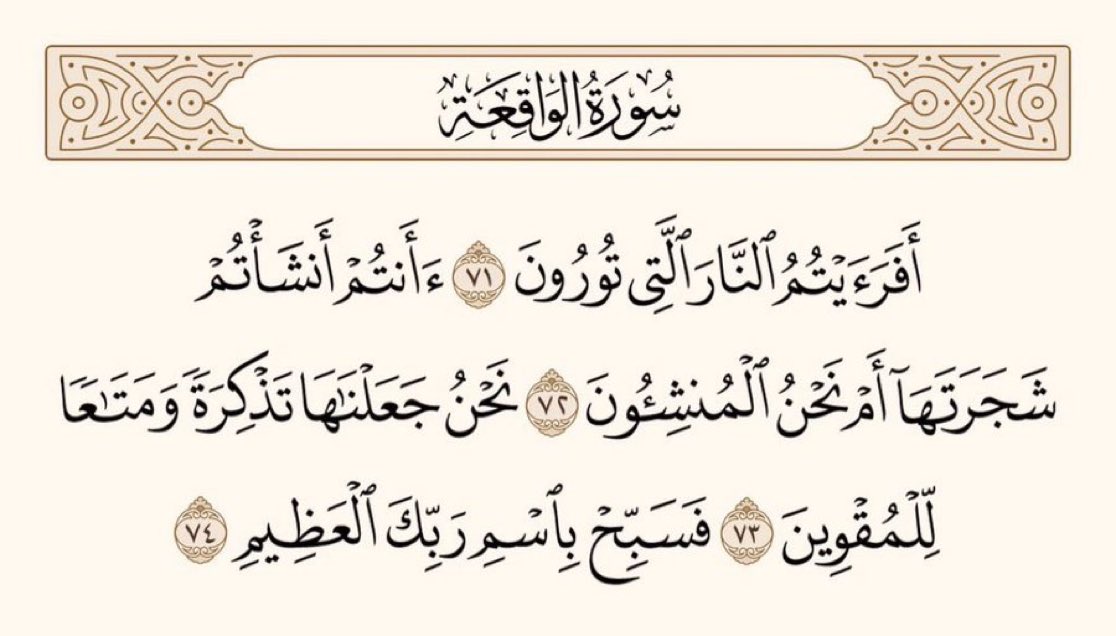 سُورَةُ الوَاقِعَةِ
أَفَرَءَيْتُمُ ٱلنَّارَ ٱلَّتِى تُورُونَ ٧١ ءَأَنتُمْ أَنشَأْتُمْ
شَجَرَتَهَآ أَمْ نَحْنُ ٱلْمُنشِـُٔونَ ٧٢ نَحْنُ جَعَلْنَـٰهَا تَذْكِرَةً وَمَتَـٰعًا
لِّلْمُقْوِينَ ٧٣ فَسَبِّحْ بِٱسْمِ رَبِّكَ ٱلْعَظِيمِ ٧٤